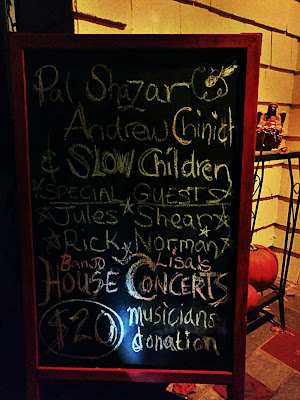 Pal Shazar
Andrew Chinich
& SLOW Children
SPECIAL GUESTS
Jules Shear
Rick Norman
BANJO Lisa's
HOUSE CONCERTS
$20 musicians
donation